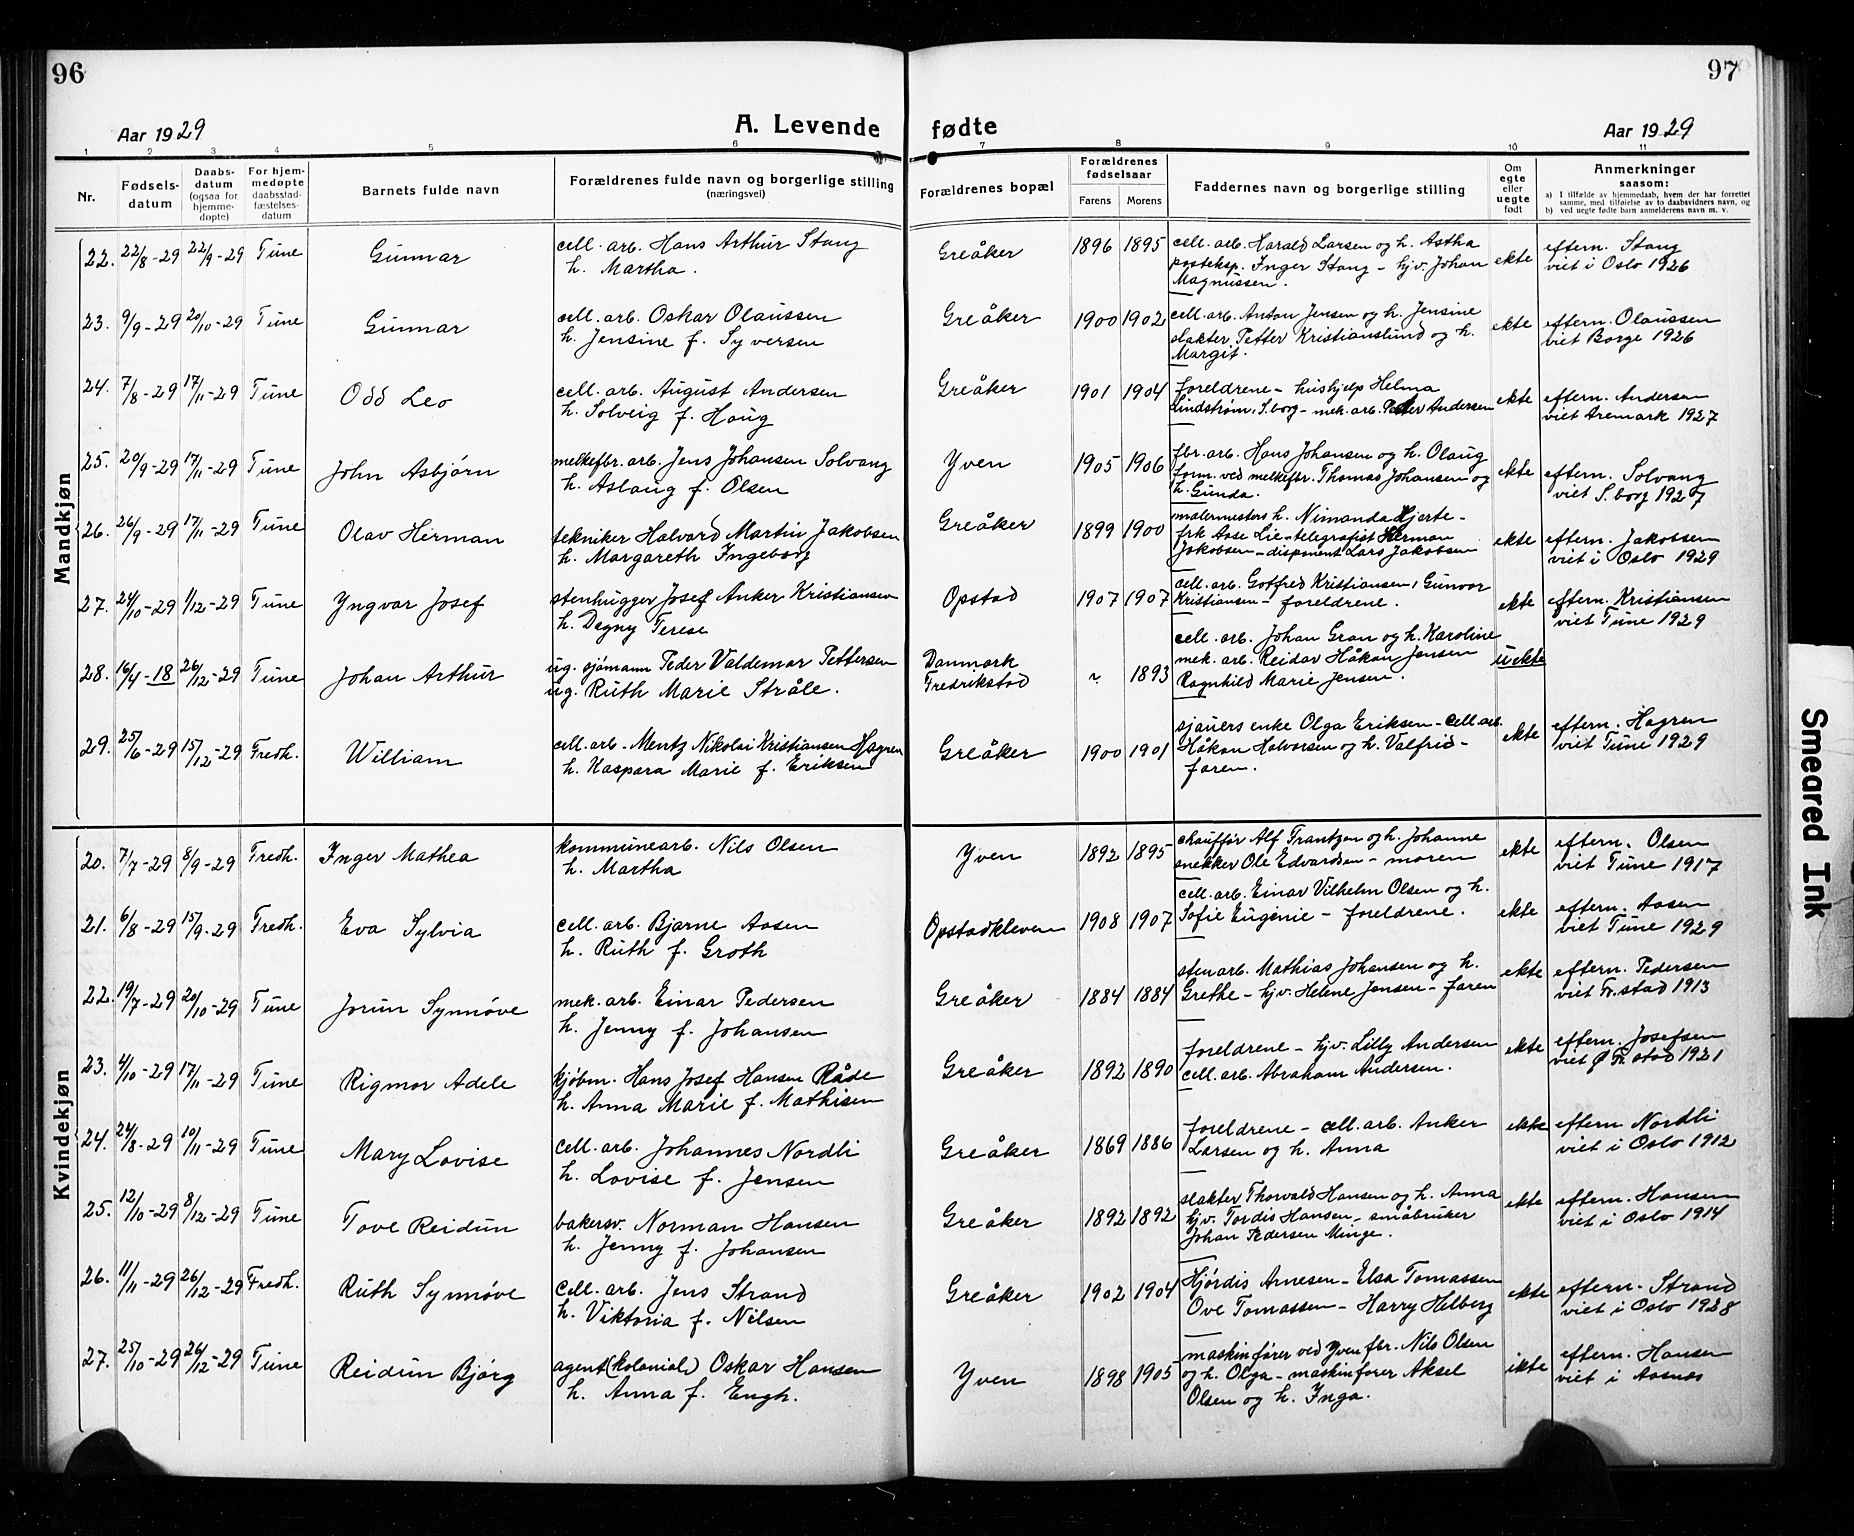 96
97
Aar 1929
A. Levende fødte
Aar 1929
1 2 3 4 5 6 7 8 9 10 11
Nr.
Fødsels-
datum
Daabs-
datum
(ogsaa for
hjemme-
døpte)
For hjem-
medøpte
daabsstad-
fæstelses-
datum
Barnets fulde navn
Forældrenes fulde navn og borgerlige stilling
(næringsvei)
Forældrenes bopæl
Forældrenes
fødselsaar
Farens Morens
Faddernes navn og borgerlige stilling
Om
egte
eller
uegte
født
Anmerkninger
saasom:
a) I tilfælde av hjemmedaab, hvem der har forrettet
samme, med tilføielse av to daabsvidners navn, og
b) ved uegte fødte barn anmelderens navn m. v.
Mandkjøn
22. 22/8-29 22/9-29 Tune Gunnar
cell. arb. Hans Arthur Stang
h. Martha.
Greåker 1896 1895
cell. arb. Harald Larsen og h. Astha
posteksp. Inger Stang - hjv. Johan
Magnussen.
ekte
eftern. Stang
viet i Oslo 1926
23. 9/9-29 20/10-29 Tune Gunnar
cell. arb. Oskar Olaussen
h. Jensine f. Syversen
Greåker 1900 1902
cell. arb. Anton Jensen og h. Jensine
slakter Petter Kristianslund og h.
Margit.
ekte
eftern. Olaussen
viet Borge 1926
24. 7/8-29 17/11-29 Tune Odd Leo
cell. arb. August Andersen
h. Solveig f. Haug
Greåker 1901 1904
foreldrene - hushjelp Helma
Lindstrøm, S.borg - mek. arb. Petter Andersen
ekte
eftern. Andersen
viet Aremark 1927
25. 20/9-29 17/11-29 Tune John Asbjørn
melkefbr. arb. Jens Johansen Solvang
h. Aslaug f. Olsen
Yven 1905 1906
fbr. arb. Hans Johansen og h. Olaug
form. ved melkefbr. Thomas Johansen og
h. Gunda.
ekte
eftern. Solvang
viet S.borg 1927
26. 26/9-29 17/11-29 Tune Olav Herman
tekniker Halvard Martin Jakobsen
h. Margareth Ingeborg
Greåker 1899 1900
malermesters h. Nimanda Hjerte-
frk Aase Lie - telegrafist Herman
Jakobsen - disponent Lars Jakobsen
ekte
eftern. Jakobsen
viet i Oslo 1929
27. 24/10-29 1/12-29 Tune Yngvar Josef
stenhugger Josef Anker Kristiansen
h. Dagny Terese
Opstad 1907 1907
cell. arb. Gotfred Kristiansen, Gunvor
Kristiansen - foreldrene.
ekte
eftern. Kristiansen
viet Tune 1929
28. 16/4-18 26/12-29 Tune Johan Arthur
ug. sjømann Peder Valdemar Pettersen
ug. Ruth Marie Stråle.
Danmark
Fredrikstad
? 1893
cell. arb. Johan Gran og h. Karoline
mek. arb. Reidar Håkon Jensen
Ragnhild Marie Jensen.
uekte
29. 25/6-29 15/12-29 Fredh. William
cell. arb. Mentz Nikolai Kristiansen Hagren
h. Kaspara Marie f. Eriksen
Greåker 1900 1901
sjauers enke Olga Eriksen - cell. arb.
Håkon Halvorsen og h. Valfrid -
faren.
ekte
eftern. Hagren
viet Tune 1929
Kvindekjøn
20. 7/7-29 8/9-29 Fredh. Inger Mathea
kommunearb. Nils Olsen
h. Martha
Yven 1892 1895
chauffør Alf Frantzen og h. Johanne
snekker Ole Edvardsen - moren
ekte
eftern. Olsen
viet Tune 1917
21. 6/8-29 15/9-29 Fredh. Eva Sylvia
cell. arb. Bjarne Aasen
h. Ruth f. Groth
Opstadkleven 1908 1907
cell. arb. Einar Vilhelm Olsen og h.
Sofie Eugenie - foreldrene.
ekte
eftern. Aasen
viet Tune 1929
22. 19/7-29 20/10-29 Tune Jorun Synnøve
mek. arb. Einar Pedersen
h. Jenny f. Johansen
Greåker 1884 1884
stenarb. Mathias Johansen og h.
Grethe - hjv. Helene Jensen - faren
ekte
eftern. Pedersen
viet Fr.stad 1913
23. 4/10-29 17/11-29 Tune Rigmor Adele
kjøbm. Hans Josef Hansen Råde
h. Anna Marie f. Mathisen
Greåker 1892 1890
foreldrene - hjv. Lilly Andersen
cell. arb. Abraham Andersen.
ekte
eftern. Josefsen
viet Ø Fr. stad 1921
24. 24/8-29 10/11-29 Tune Mary Lovise
cell. arb. Johannes Nordli
h. Lovise f. Jensen
Greåker 1869 1886
foreldrene - cell. arb. Anker
Larsen og h. Anna
ekte
eftern Nordli
viet i Oslo 1912
25. 12/10-29 8/12-29 Tune Tove Reidun
bakersv. Norman Hansen
h. Jenny f. Johansen
Greåker 1892 1892
slakter Thorvald Hansen og h. Anna
hjv. Tordis Hansen - småbruker
Johan Pedersen Minge.
ekte
eftern. Hansen
viet i Oslo 1914
26. 11/11-29 26/12-29 Fredh. Ruth Synnøve
cell. arb. Jens Strand
h. Viktoria f. Nilsen
Greåker 1902 1904
Hjørdis Arnesen - Elsa Tomassen
Ove Tomassen - Harry Helberg
ekte
eftern. Strand
viet i Oslo 1928
27. 25/10-29 26/12-29 Tune Reidun Bjørg
agent (kolonial) Oskar Hansen
h. Anna f. Engh.
Yven 1898 1905
maskinfører ved Yven fbr. Nils Olsen
og h. Olga - maskinfører Aksel
Olsen og h. Inga.
ekte
eftern. Hansen
viet i Aasnes
Smeared Ink